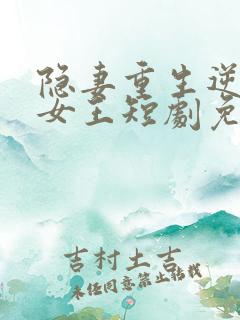 隐妻重生逆
女王短劇免
吉村土吉
未经同意禁止转载